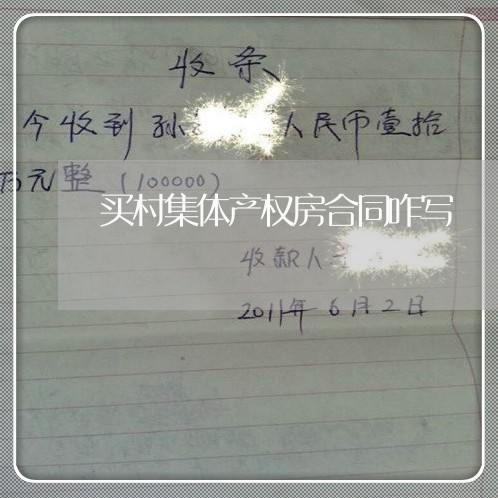 收条
今收到孙 人民币壹拾
万元整(100000)
买村集体产权房合同咋写
收款人
2011年6月2日